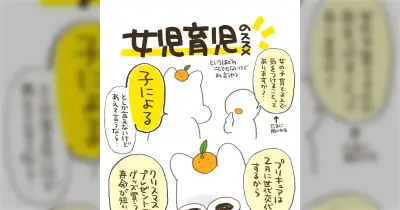 女児育児のススメ
というほどの
こともないけど
女の子育てる上で
気をつけることって
ありますか?
子による
としか言えないけど
あえて言うなら…
プリキュアは
2月に世代交代
するから
クリスマス
プレゼントで
グッズ買うと
寿命が短い